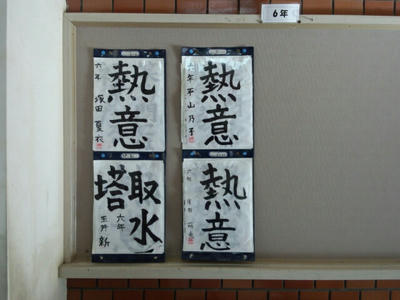 6年
熱意
六年 塚田 夏衣
熱意
六年 平山乃子
取水塔
六年
玉井 新
熱意
六年